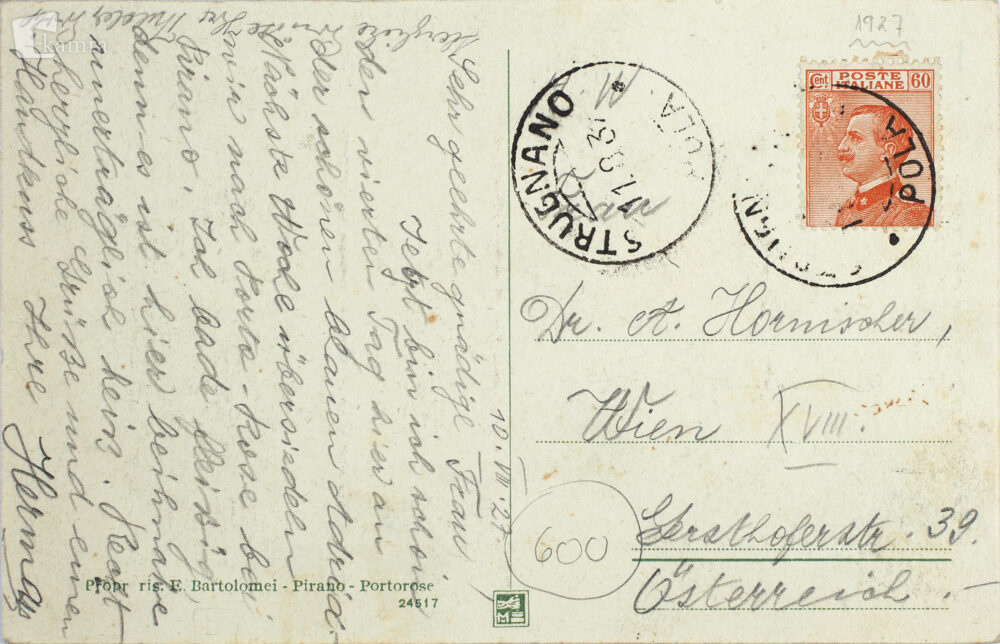 kamra
10. VIII. 27
Sehr geehrte gnädige Frau
Jetzt bin ich schon
den vierten Tag hier an
der schönen blauen Adria.
Nächste Woche übersiedeln
wir nach Porto-Rose bei
Pirano. Ich bade fleissig
denn es ist hier beinahe
unerträglich heiss. Recht
herzliche Grüße und einen
Handkuss Ihre Hermas
Herzliche
Propr. ris. E. Bartolomei - Pirano - Portorose
24517
1927
Cent POSTE ITALIANE 60
STRUGNANO
POLA
11.8
POLA
Frau
Dr. A. Hornischer,
Wien XVIII.
Gersthoferstr. 39.
Österreich.
600